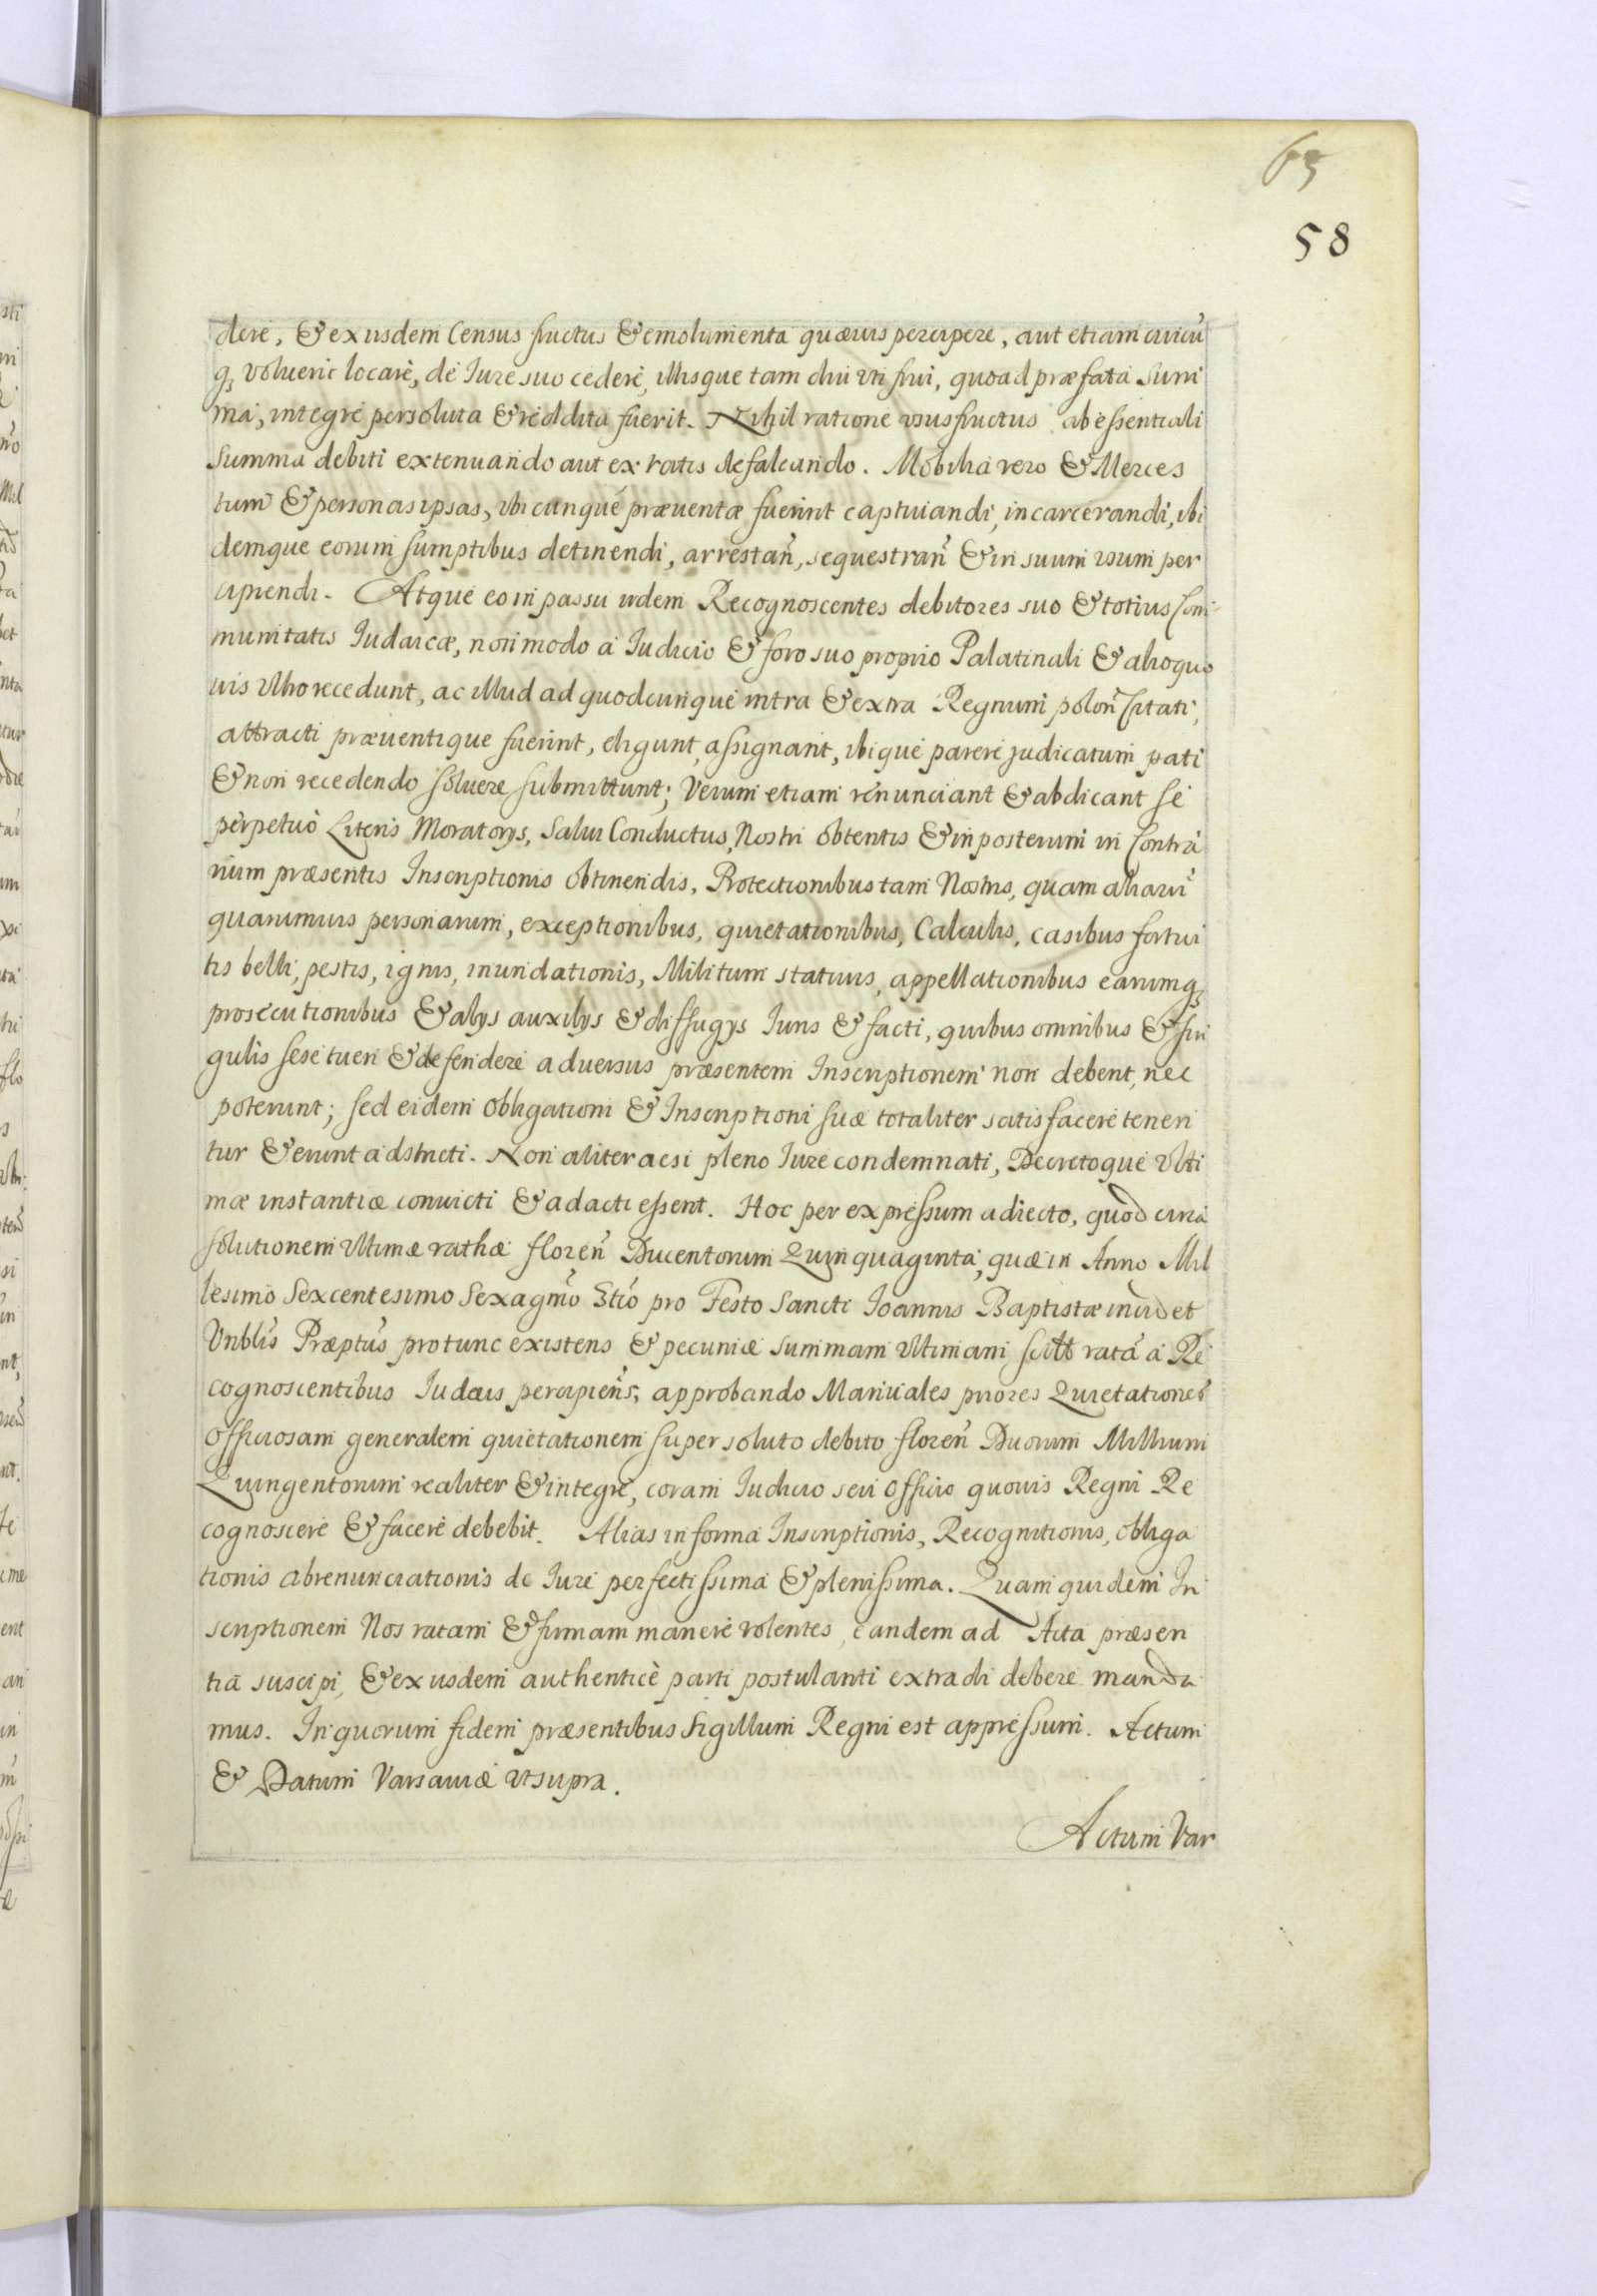 63
58
dere, & ex iisdem Census fructus & emolumenta quæuis percipere, aut etiam cuicũ
q; voluerit locare, de Iure suo cedere, illisque tam diu vti frui, quoad præfata Sum
ma, integre persoluta & reddita fuerit. Nihil ratione vsusfructus ab essentiali
Summa debiti extenuando aut ex ratis defalcando. Mobilia vero & Merces
tum & personas ipsas, vbicunque præuentæ fuerint captiuandi, incarcerandi, ibi
demque eorum sumptibus detinendi, arrestañ, sequestrañ & in suum vsum per
cipiendi. Atque eo in passu iidem Recognoscentes debitores suo & totius Com
munitatis Iudaicæ, non modo a Iudicio & foro suo proprio Palatinali & alio quo
uis vllo recedunt, ac illud ad quodcunque intra & extra Regnum poloñ Citati,
attracti præuentique fuerint, eligunt, assignant, ibique parere judicatum pati
& non recedendo soluere submittunt; Verum etiam renunciant & abdicant se
perpetuò Literis Moratorys, Salui Conductus, Nostri obtentis & in posterum in Contra
rium præsentis Inscriptionis obtinendis, Protectionibus tam Nostris, quam aliarũ
quarumuis personarum, exceptionibus, quietationibus, Calculis, casibus fortui
tis belli, pestis, ignis, inundationis, Militum statiuis, appellationibus earumq;
prosecutionibus & alys auxilys & diffugys Iuris & facti, quibus omnibus & sin
gulis sese tueri & defendere aduersus præsentem Inscriptionem non debent, nec
poterunt; sed eidem obligationi & Inscriptioni suæ totaliter satisfacere tenen
tur & erunt adstricti. Non aliter acsi pleno Iure condemnati, Decretoque Vlti
mæ instantiæ conuicti & adacti essent. Hoc per expressum adiecto, quod circa
solutionem Vltimæ rathæ floreñ Ducentorum Quinquaginta, quæ in Anno Mil
lesimo Sexcentesimo Sexagmo 3tio pro Festo Sancti Ioannis Baptistæ incidet
Vniblis Præptus protunc existens & pecuniæ summam vltimam, scilt ratã a Re
cognoscentibus Iudæis percipiens, approbando Manuales priores Quietationes
Officiosam generalem quietationem super soluto debito floreñ Duorum Millium
Quingentorum realiter & integre, coram Iudicio seu Officio quouis Regni Re
cognoscere & facere debebit. Alias in forma Inscriptionis, Recognitionis, obliga
tionis abrenunciationis de Iure perfectissima & plenissima. Quam quidem In
scriptionem Nos ratam & firmam manere volentes, eandem ad Acta præsen
tia suscipi, & ex iisdem authenticè parti postulanti extradi debere manda
mus. In quorum fidem præsentibus Sigillum Regni est appressum. Actum
& Datum Varsauiæ vt supra.
Actum Var